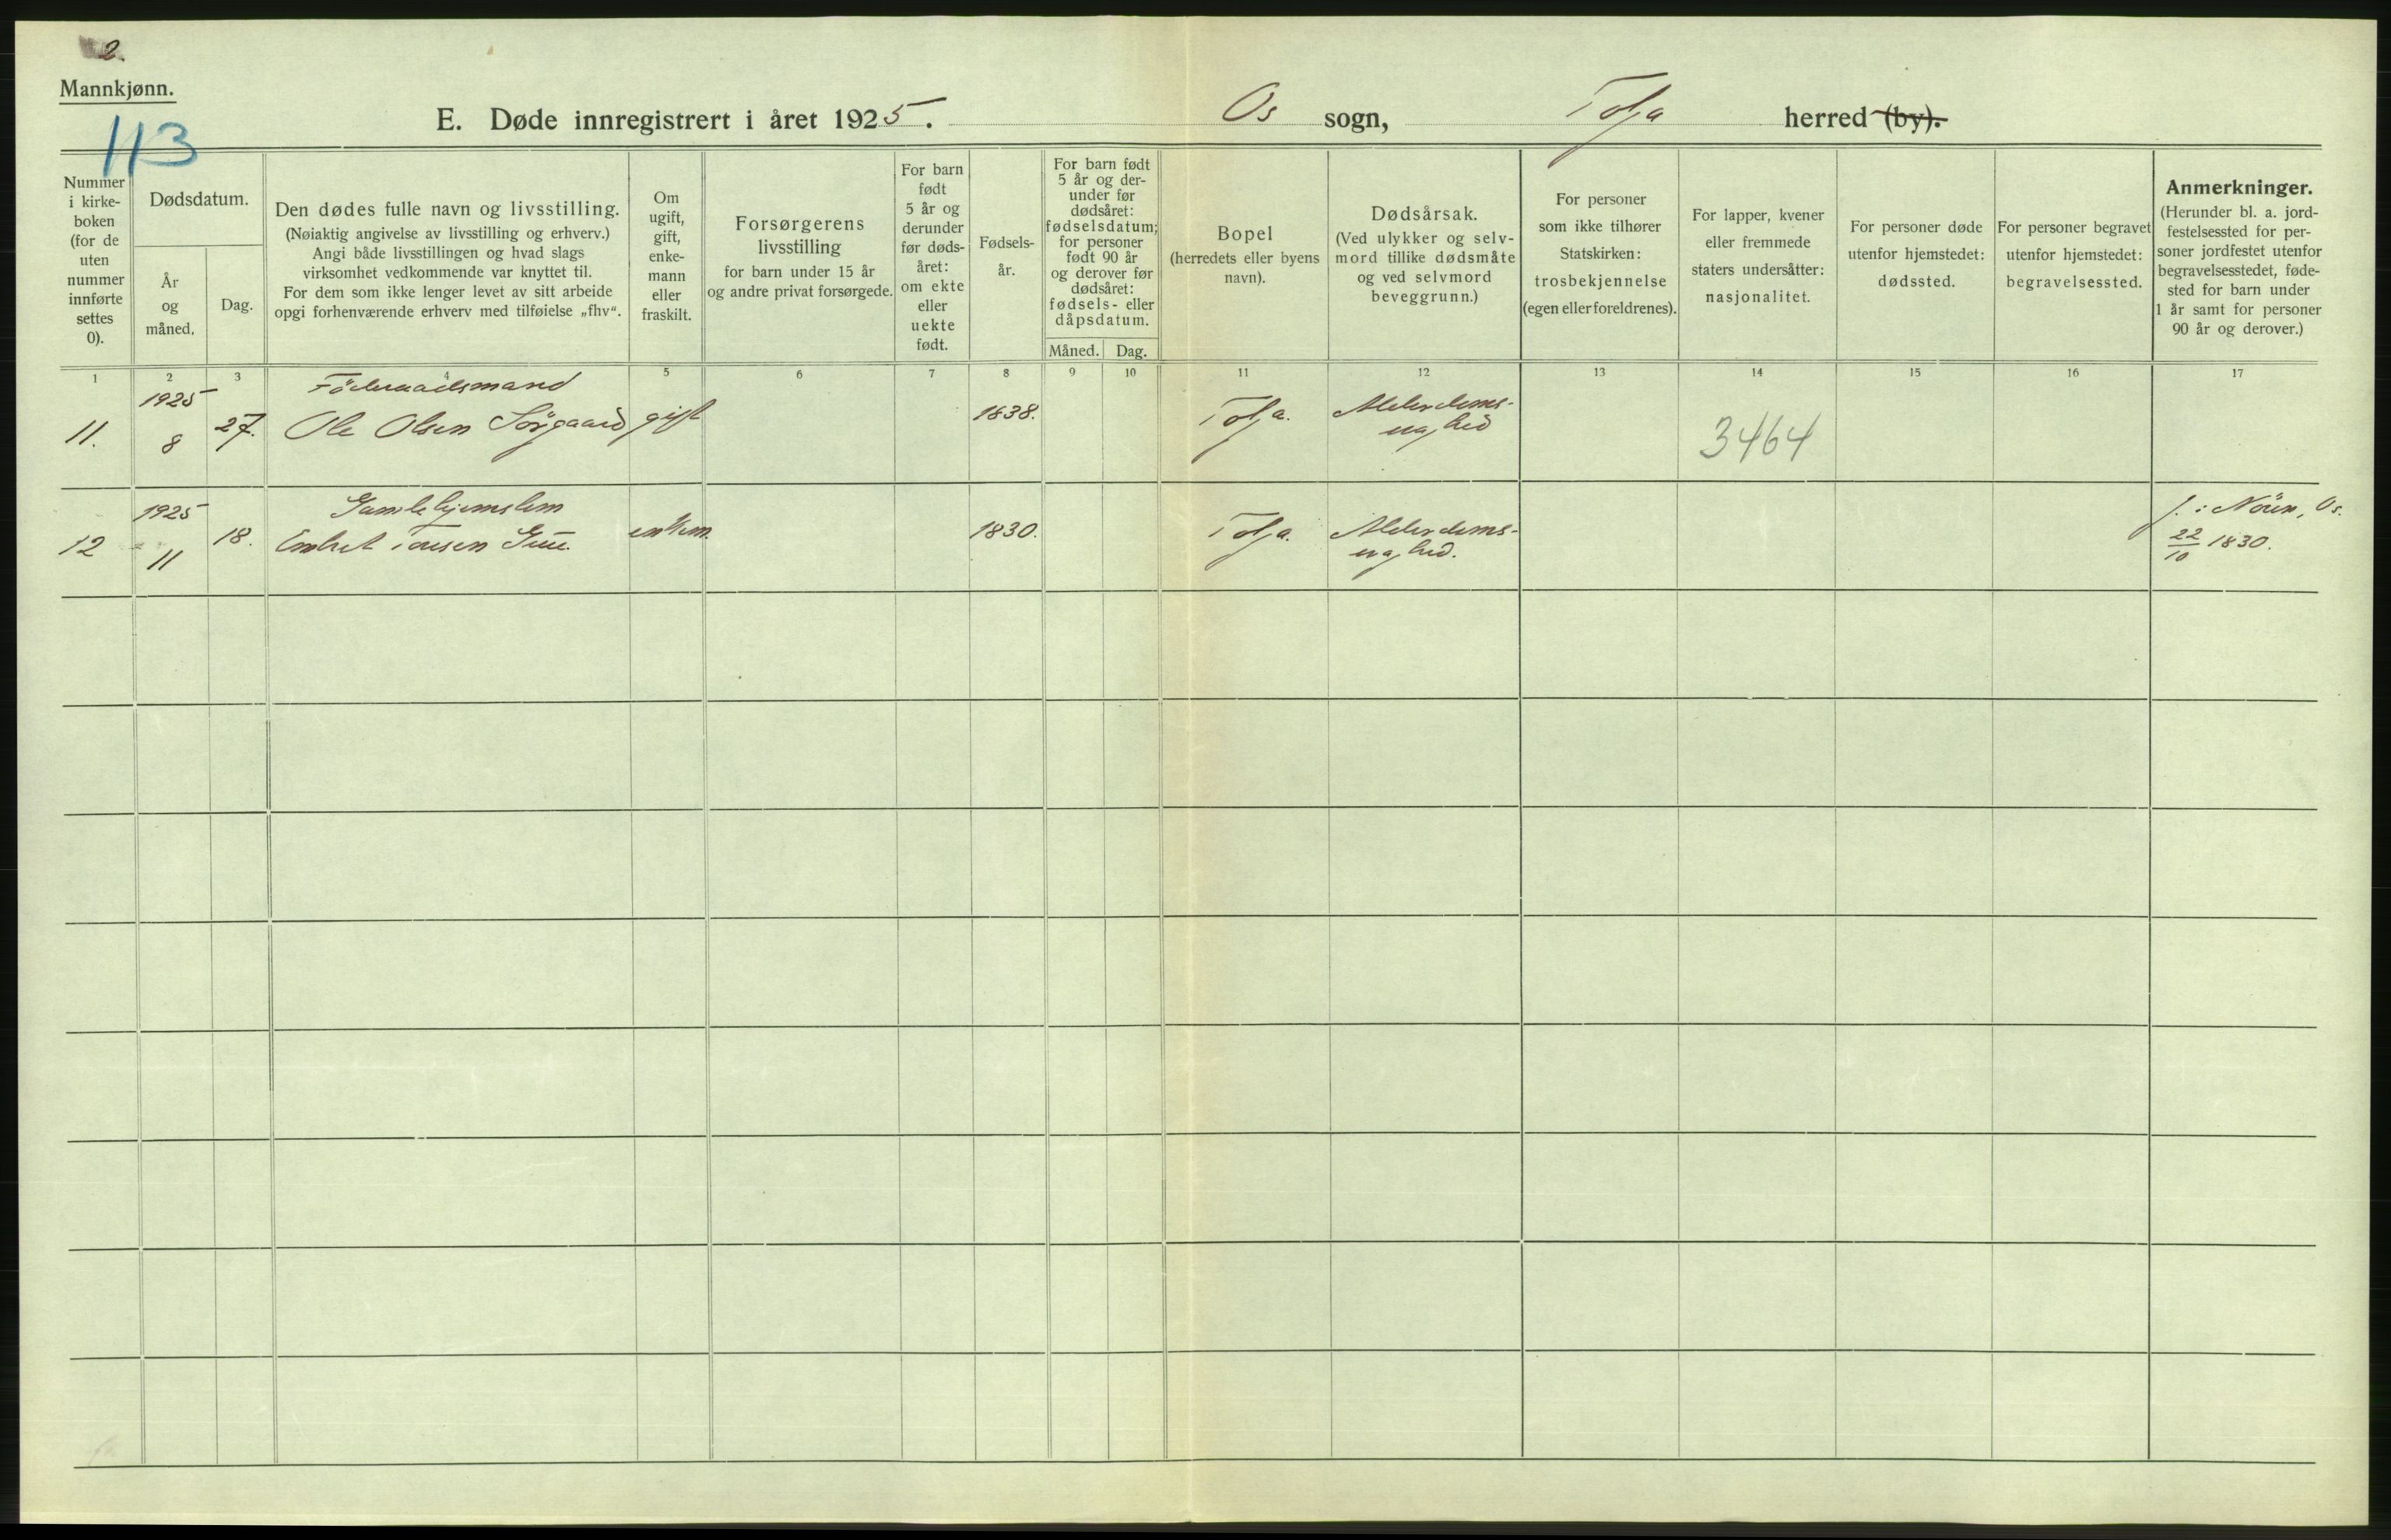 2.
Mannkjønn.
113
E. Døde innregistrert i året 1925. Os sogn, Tolga herred (by).
Nummer
i kirke-
boken
(for de
uten
nummer
innførte
settes
0).
Dødsdatum.
År
og
måned.
Dag.
Den dødes fulle navn og livsstilling.
(Nøiaktig angivelse av livsstilling og erhverv.)
Angi både livsstillingen og hvad slags
virksomhet vedkommende var knyttet til.
For dem som ikke lenger levet av sitt arbeide
opgi forhenværende erhverv med tilføielse „fhv“.
Om
ugift,
gift,
enke-
mann
eller
fraskilt.
Forsørgerens
livsstilling
for barn under 15 år
og andre privat forsørgede.
For barn
født
5 år og
derunder
før døds-
året:
om ekte
eller
uekte
født.
Fødsels-
år.
For barn født
5 år og der-
under før
dødsåret:
fødselsdatum;
for personer
født 90 år
og derover før
dødsåret:
fødsels- eller
dåpsdatum.
Måned. Dag.
Bopel
(herredets eller byens
navn).
Dødsårsak.
(Ved ulykker og selv-
mord tillike dødsmåte
og ved selvmord
beveggrunn.)
For personer
som ikke tilhører
Statskirken:
trosbekjennelse
(egen eller foreldrenes).
For lapper, kvener
eller fremmede
staters undersåtter:
nasjonalitet.
For personer døde
utenfor hjemstedet:
dødssted.
For personer begravet
utenfor hjemstedet:
begravelsessted.
Anmerkninger.
(Herunder bl. a. jord-
festelsessted for per-
soner jordfestet utenfor
begravelsesstedet, føde-
sted for barn under
1 år samt for personer
90 år og derover.)
1 2 3 4 5 6 7 8 9 10 11 12 13 14 15 16 17
11.
1925
8
27.
Föderaadsmand
Ole Olsen Sörgaard
gift
1838.
Tolga.
Alderdoms-
svaghed
3464
12
1925
11
18.
Gamlehjemslem
Embret Toresen
enkem.
1830.
Tolga.
Alderdoms-
svaghed.
f. i Nören, Os.
22/10 1830.